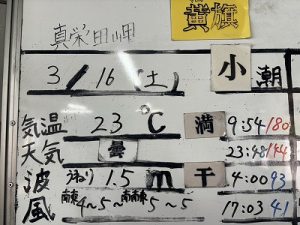 黄旗
真栄田岬
3/16(土) 小潮
気温 23℃ 満 9:54 180
天気 曇 23:48 144
波 うねり 1.5m 干 4:00 93
風 南東4~5~南南東5~5 17:03 41